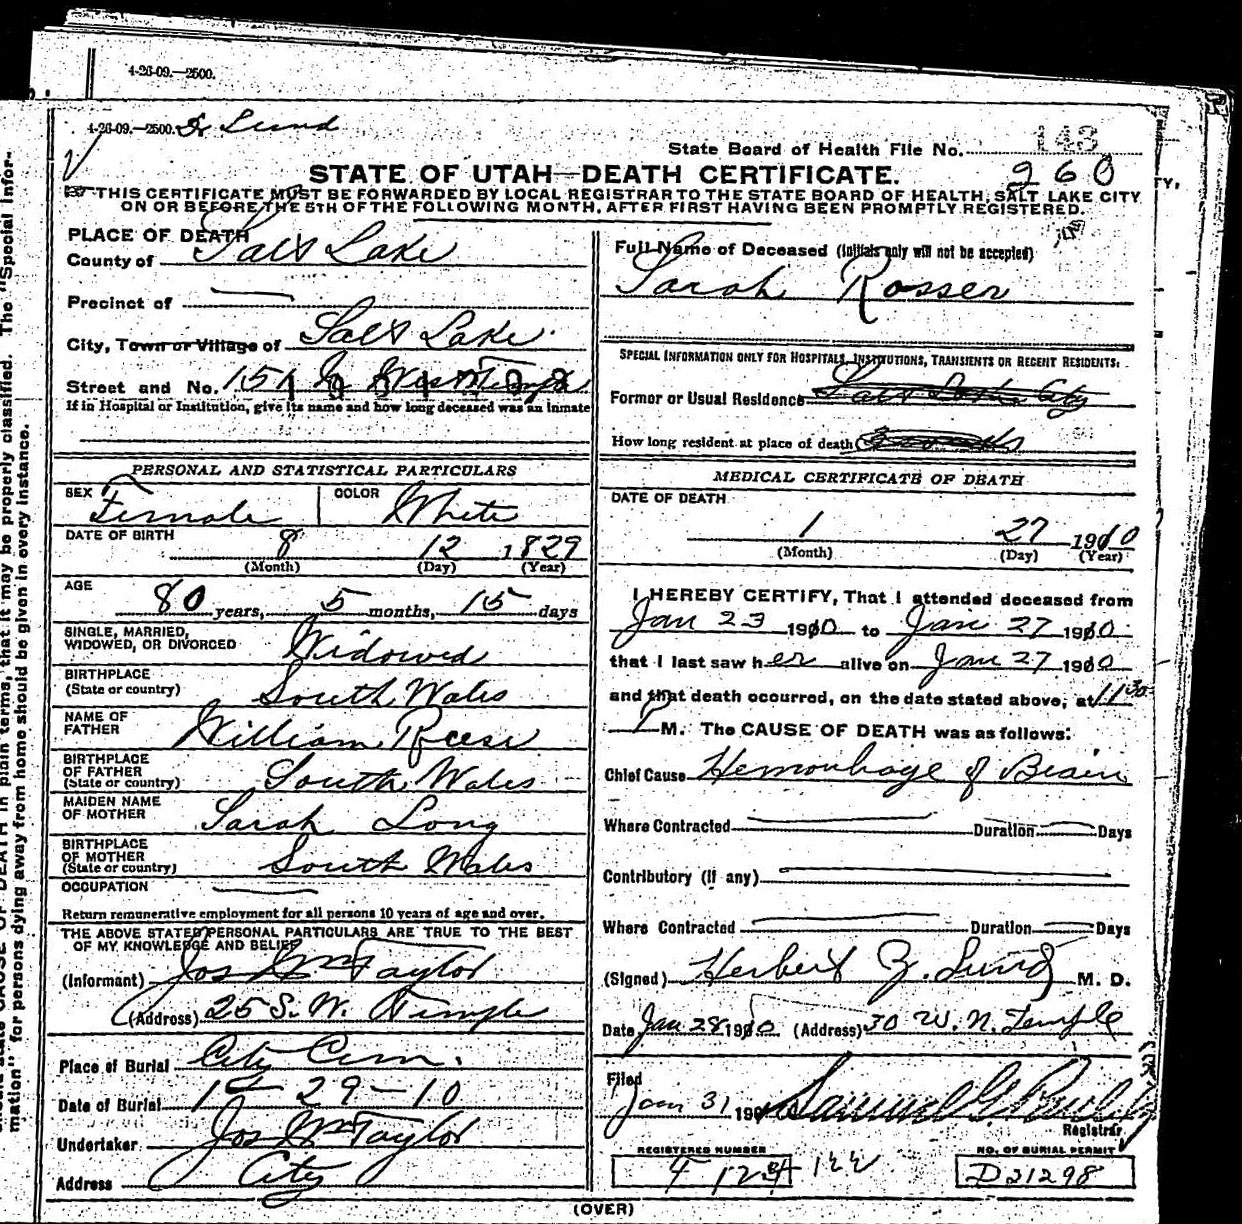 4-26-09.—2500.
4-26-09.—2500. Dr Lund
State Board of Health File No. 143
STATE OF UTAH—DEATH CERTIFICATE. 260
THIS CERTIFICATE MUST BE FORWARDED BY LOCAL REGISTRAR TO THE STATE BOARD OF HEALTH, SALT LAKE CITY
ON OR BEFORE THE 5TH OF THE FOLLOWING MONTH, AFTER FIRST HAVING BEEN PROMPTLY REGISTERED.
PLACE OF DEATH
County of Salt Lake
Precinct of
City, Town or Village of Salt Lake
Street and No.
If in Hospital or Institution, give its name and how long deceased was an inmate
PERSONAL AND STATISTICAL PARTICULARS
SEX Female COLOR White
DATE OF BIRTH 8 12 1829
(Month) (Day) (Year)
AGE 80 years, 5 months, 15 days
SINGLE, MARRIED,
WIDOWED, OR DIVORCED Widowed
BIRTHPLACE
(State or country) South Wales
NAME OF
FATHER William Reese
BIRTHPLACE
OF FATHER
(State or country) South Wales
MAIDEN NAME
OF MOTHER Sarah Long
BIRTHPLACE
OF MOTHER
(State or country) South Wales
OCCUPATION
Return remunerative employment for all persons 10 years of age and over.
THE ABOVE STATED PERSONAL PARTICULARS ARE TRUE TO THE BEST
OF MY KNOWLEDGE AND BELIEF
(Informant) Jos Wm Taylor
(Address) 25 S. W. Temple
Place of Burial City Cem.
Date of Burial 1 - 29 - 10
Undertaker Jos Wm Taylor
Address City
Full Name of Deceased (Initials only will not be accepted)
Sarah Rosser
SPECIAL INFORMATION ONLY FOR HOSPITALS, INSTITUTIONS, TRANSIENTS OR RECENT RESIDENTS:
Former or Usual Residence Salt Lake City
How long resident at place of death
MEDICAL CERTIFICATE OF DEATH
DATE OF DEATH
1 27 1910
(Month) (Day) (Year)
I HEREBY CERTIFY, That I attended deceased from
Jan 23 1910 to Jan 27 1910
that I last saw her alive on Jan 27 1910
and that death occurred, on the date stated above, at 11 30
P M. The CAUSE OF DEATH was as follows:
Chief Cause Hemorrhage of Brain
Where Contracted Duration Days
Contributory (if any)
Where Contracted Duration Days
(Signed) Herbert Z. Lund M. D.
Date Jan 28 1910 (Address) 30 W. N. Temple
Filed
Jan 31 190
Registrar
REGISTERED NUMBER 122
NO. OF BURIAL PERMIT
D21298
(OVER)
mation" for persons dying away from home should be given in every instance.
in plain terms, that it may be properly classified. The "Special Infor-